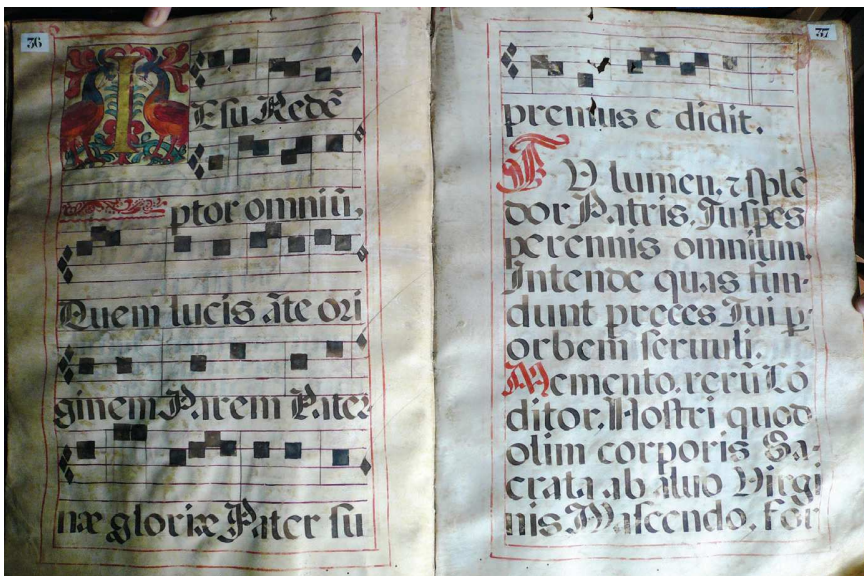 36
IEsu Redē
ptor omniū,
Quem lucis āte ori
ginem Parem Pater
næ gloriæ Pater su
37
premus e didit.
TU lumen, ⁊ splē
dor Patris, Tu spes
perennis omnium,
Intende quas fun-
dunt preces Tui ꝑ-
orbem seruuli.
Memento, rerū Cō
ditor, Nostri quod
olim corporis Sa-
crata ab aluo Virgi
nis Nascendo, for